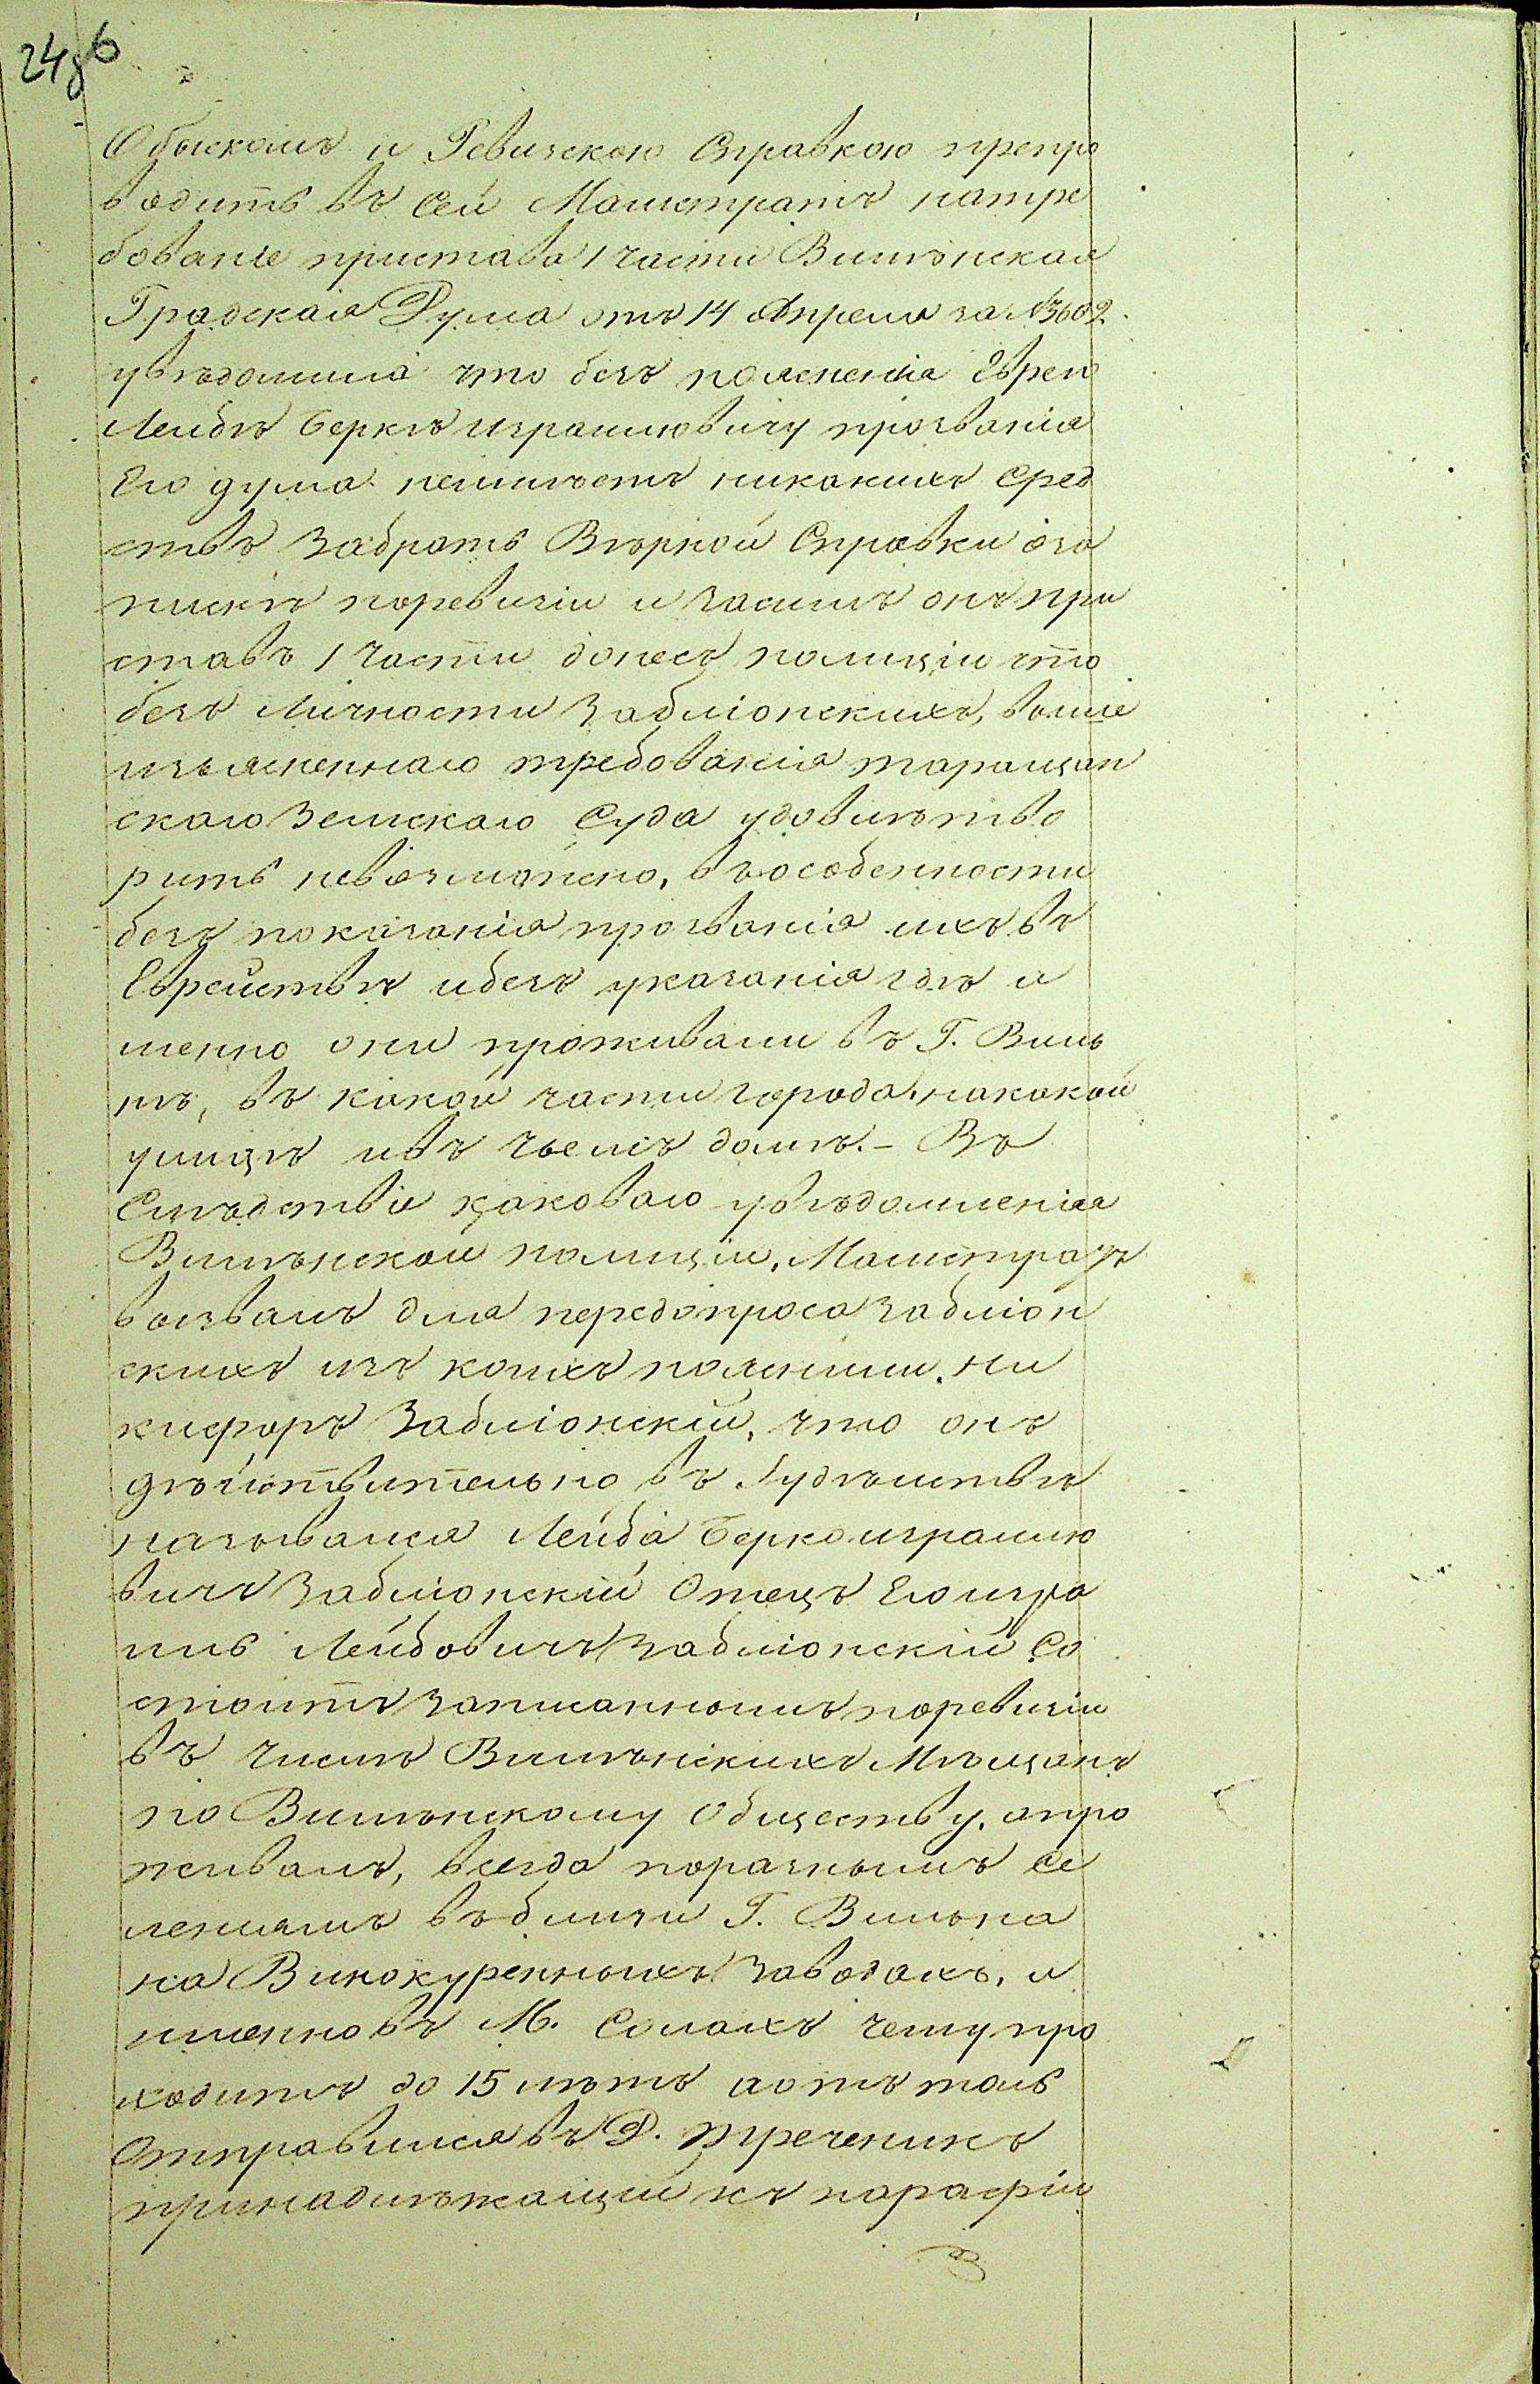 24зв
Обыскомъ и Ревизскою Справкою препро
водить въ Сей Магистратъ натре
бованіе пристава 1 части Виленская
Градская Дума отъ 14 Апреля за №3602.
увѣдомила что безъ поясненія Еврею
Лейбѣ Беркѣ Израилювичу прозванія
Его дума неимѣетъ никакихъ сред
ствъ Забрать Вѣрной Справки оза
пискѣ поревизіи и засимъ онъ при
ставъ 1 части донесъ полиціи что
безъ Личности Забліонскихъ, выше
изъясненнаго требованія таращан
скаго Земскаго Суда удовлѣтво
рить невозможно, въособенности
безъ показанія прозванія ихъ въ
Еврействѣ ибезъ указанія гдѣ и
менно они проживали въ Г. Виль
нѣ, въ какой части города, накакой
улицѣ ивъ чьемъ домѣ.- Въ
Слѣдствіи каковаго увѣдомленія
Виленской полиціи, Магистратъ
вызвалъ для передопроса Забліон
скихъ изъ коихъ пояснили, Ни
кифоръ Забліонскій, что онъ
дѣйствительно въ Іудѣйствѣ
назывался Лейба Берко израилю
вичъ Забліонскій Отецъ Его изра
иль Лейбовичъ Забліонскій Со
стоитъ Записаннымъ поревизіи
въ числѣ Виленскихъ Мѣщанъ
по Виленскому Обществу, апро
живалъ, всегда поразнымъ се
леніямъ въблизи Г. Вильна
на Винокуренныхъ Заводахъ, и
именно въ М. Солахъ чему про
ходитъ до 15 лѣтъ аотъ толь
Отправился въ Д. Треченикъ
принадлѣжащій къ парафіи